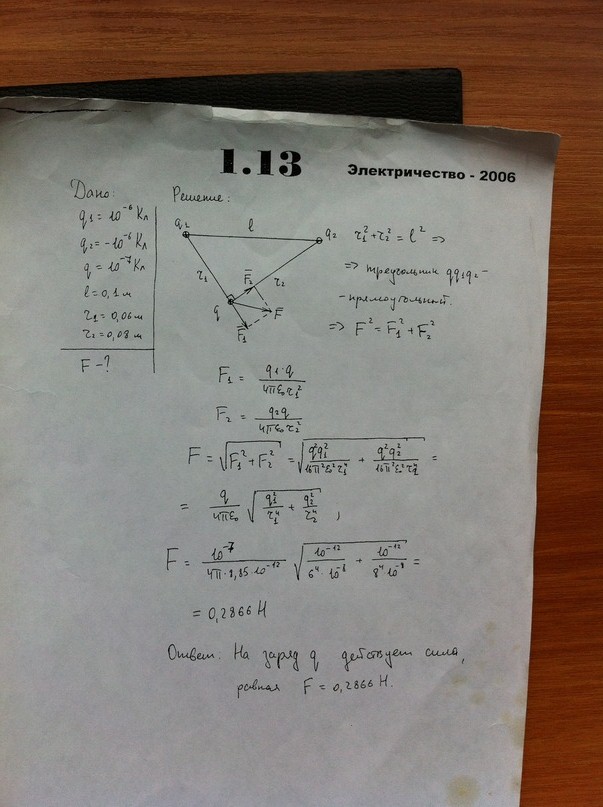 1.13
Электричество - 2006
Дано:
q1 = 10^-6 Кл
q2 = -10^-6 Кл
q = 10^-7 Кл
l = 0,1 м
τ1 = 0,06 м
τ2 = 0,08 м
F - ?
Решение:
q2 l q2
τ1 F2 τ2
q F
F1
τ1^2 + τ2^2 = l^2 =>
=> треугольник qq1q2 -
- прямоугольный.
=> F^2 = F1^2 + F2^2
F1 = q1·q / 4πε0τ1^2
F2 = q2q / 4πε0τ2^2
F = √(F1^2 + F2^2) = √(q^2q1^2 / 16π^2ε0^2τ1^4 + q^2q2^2 / 16π^2ε0^2τ2^4) =
= q / 4πε0 √(q1^2 / τ1^4 + q2^2 / τ2^4) ;
F = 10^-7 / 4π·8,85·10^-12 √(10^-12 / 6^4·10^-8 + 10^-12 / 8^4·10^-8) =
= 0,2866 Н
Ответ: На заряд q действует сила,
равная F = 0,2866 Н.